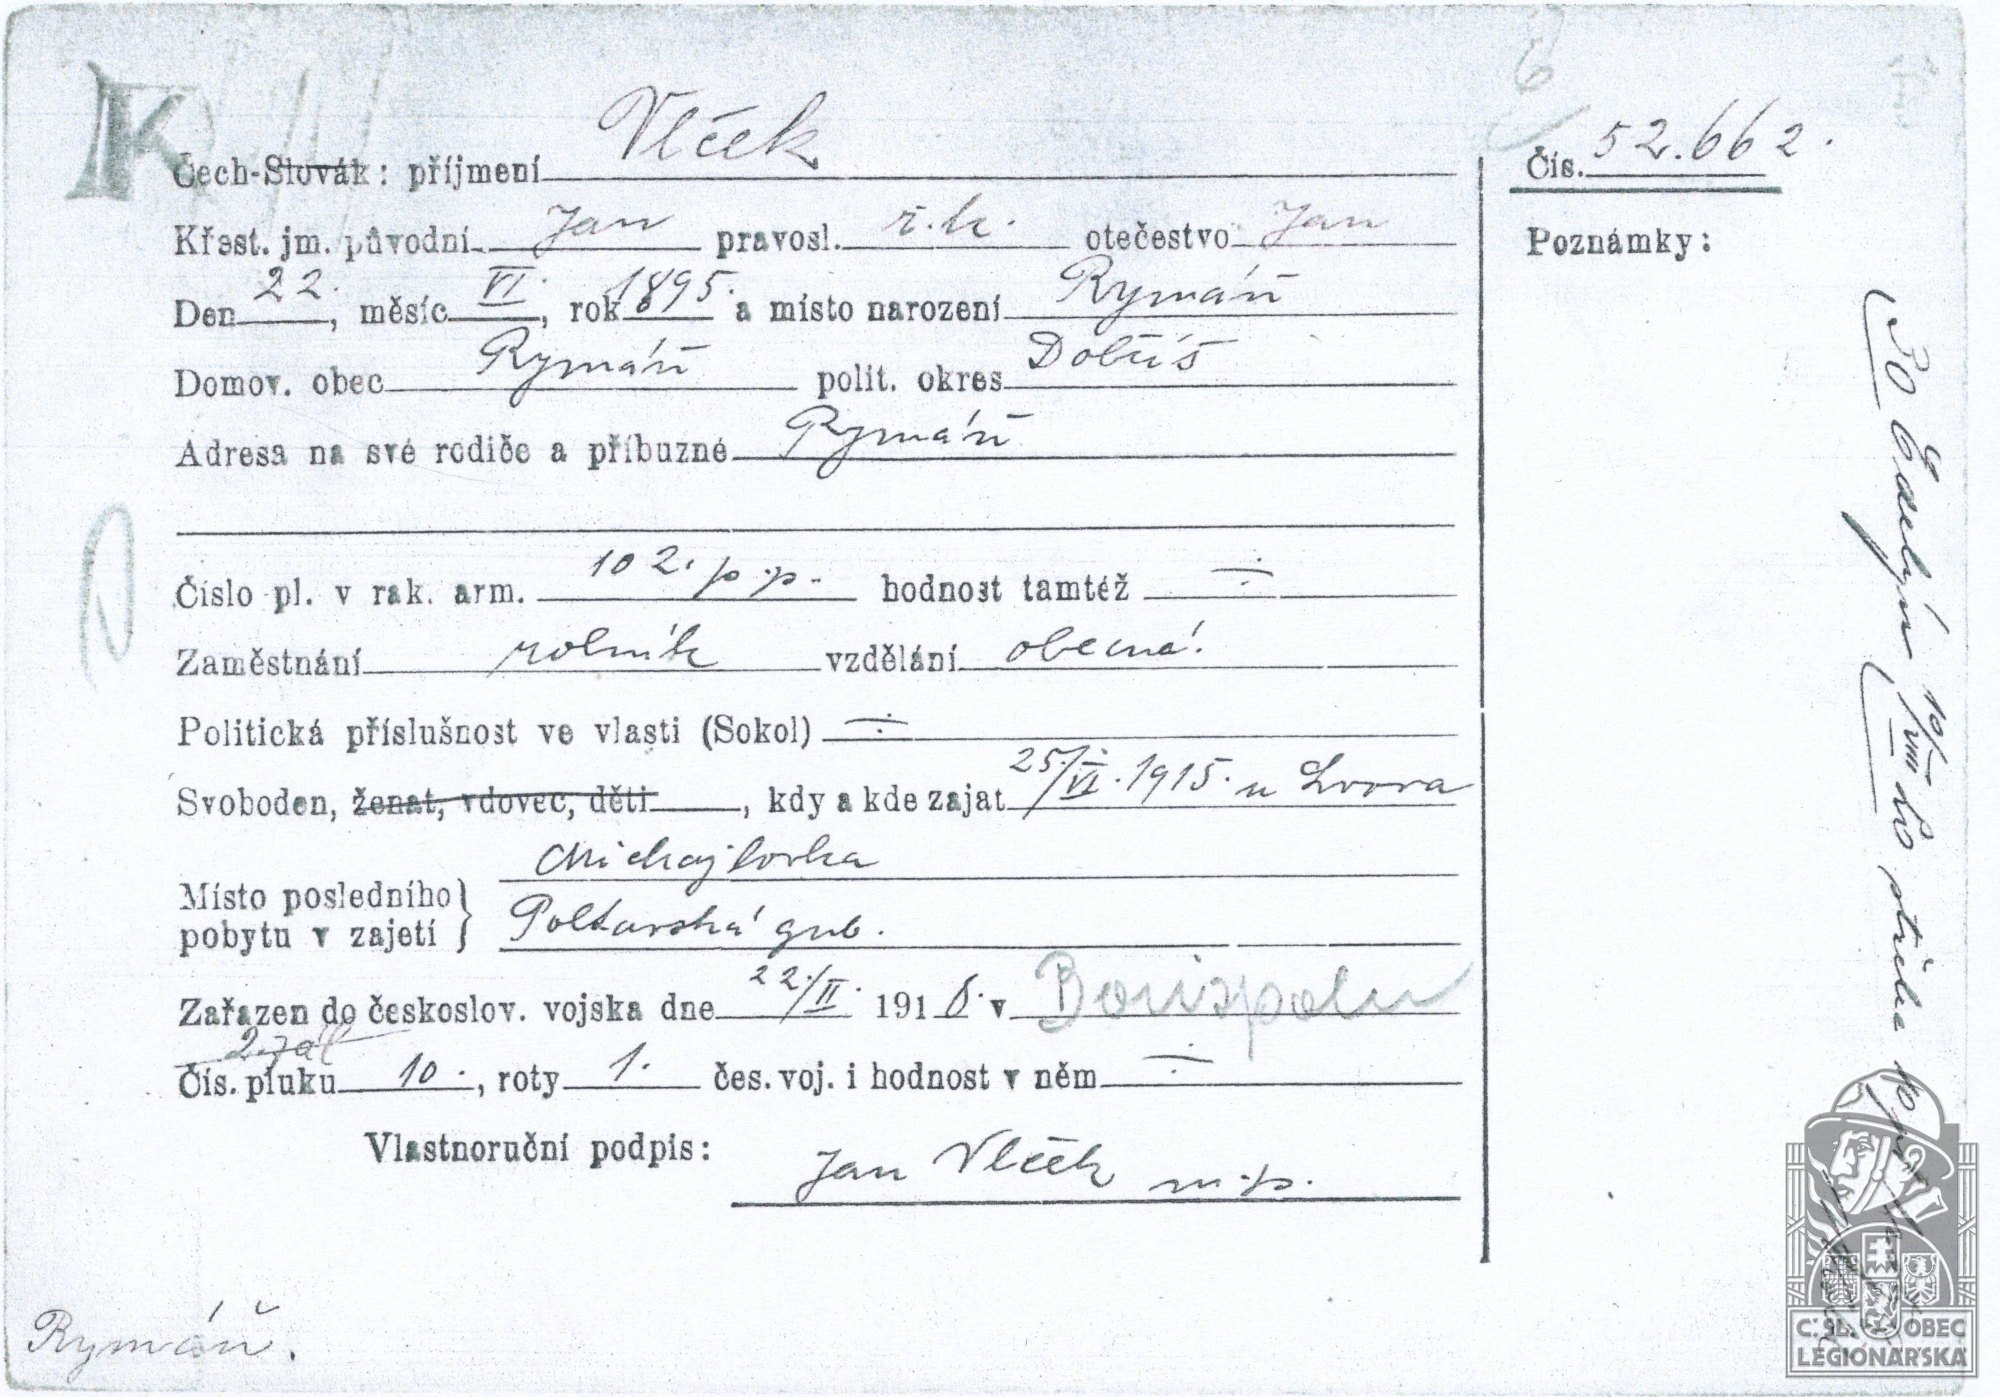 K
Vlček
Čech-Slovák: příjmení
Čís. 52.662.
Křest. jm. původní Jan pravosl. ř.k. otečestvo Jan
Poznámky:
Den 22., měsíc VI., rok 1895. a místo narození Rymáň
Domov. obec Rymáň polit. okres Dobříš
Adresa na své rodiče a příbuzné Rymáň
Číslo pl. v rak. arm. 102. p.p. hodnost tamtéž ÷
Zaměstnání rolník vzdělání obecná.
Politická příslušnost ve vlasti (Sokol) ÷
Svoboden, ženat, vdovec, děti, kdy a kde zajat 25./VI. 1915. u Lvova
Místo posledního pobytu v zajetí } Michajlovka
Poltavská gub.
Zařazen do českoslov. vojska dne 22./II. 1918. v Borispolu
2. zál
Čís. pluku 10., roty 1. čes. voj. i hodnost v něm ÷
Vlastnoruční podpis: Jan Vlček m.p.
Rymáň.
10/VIII
střelec
Č.SL. OBEC
LEGIONÁŘSKÁ